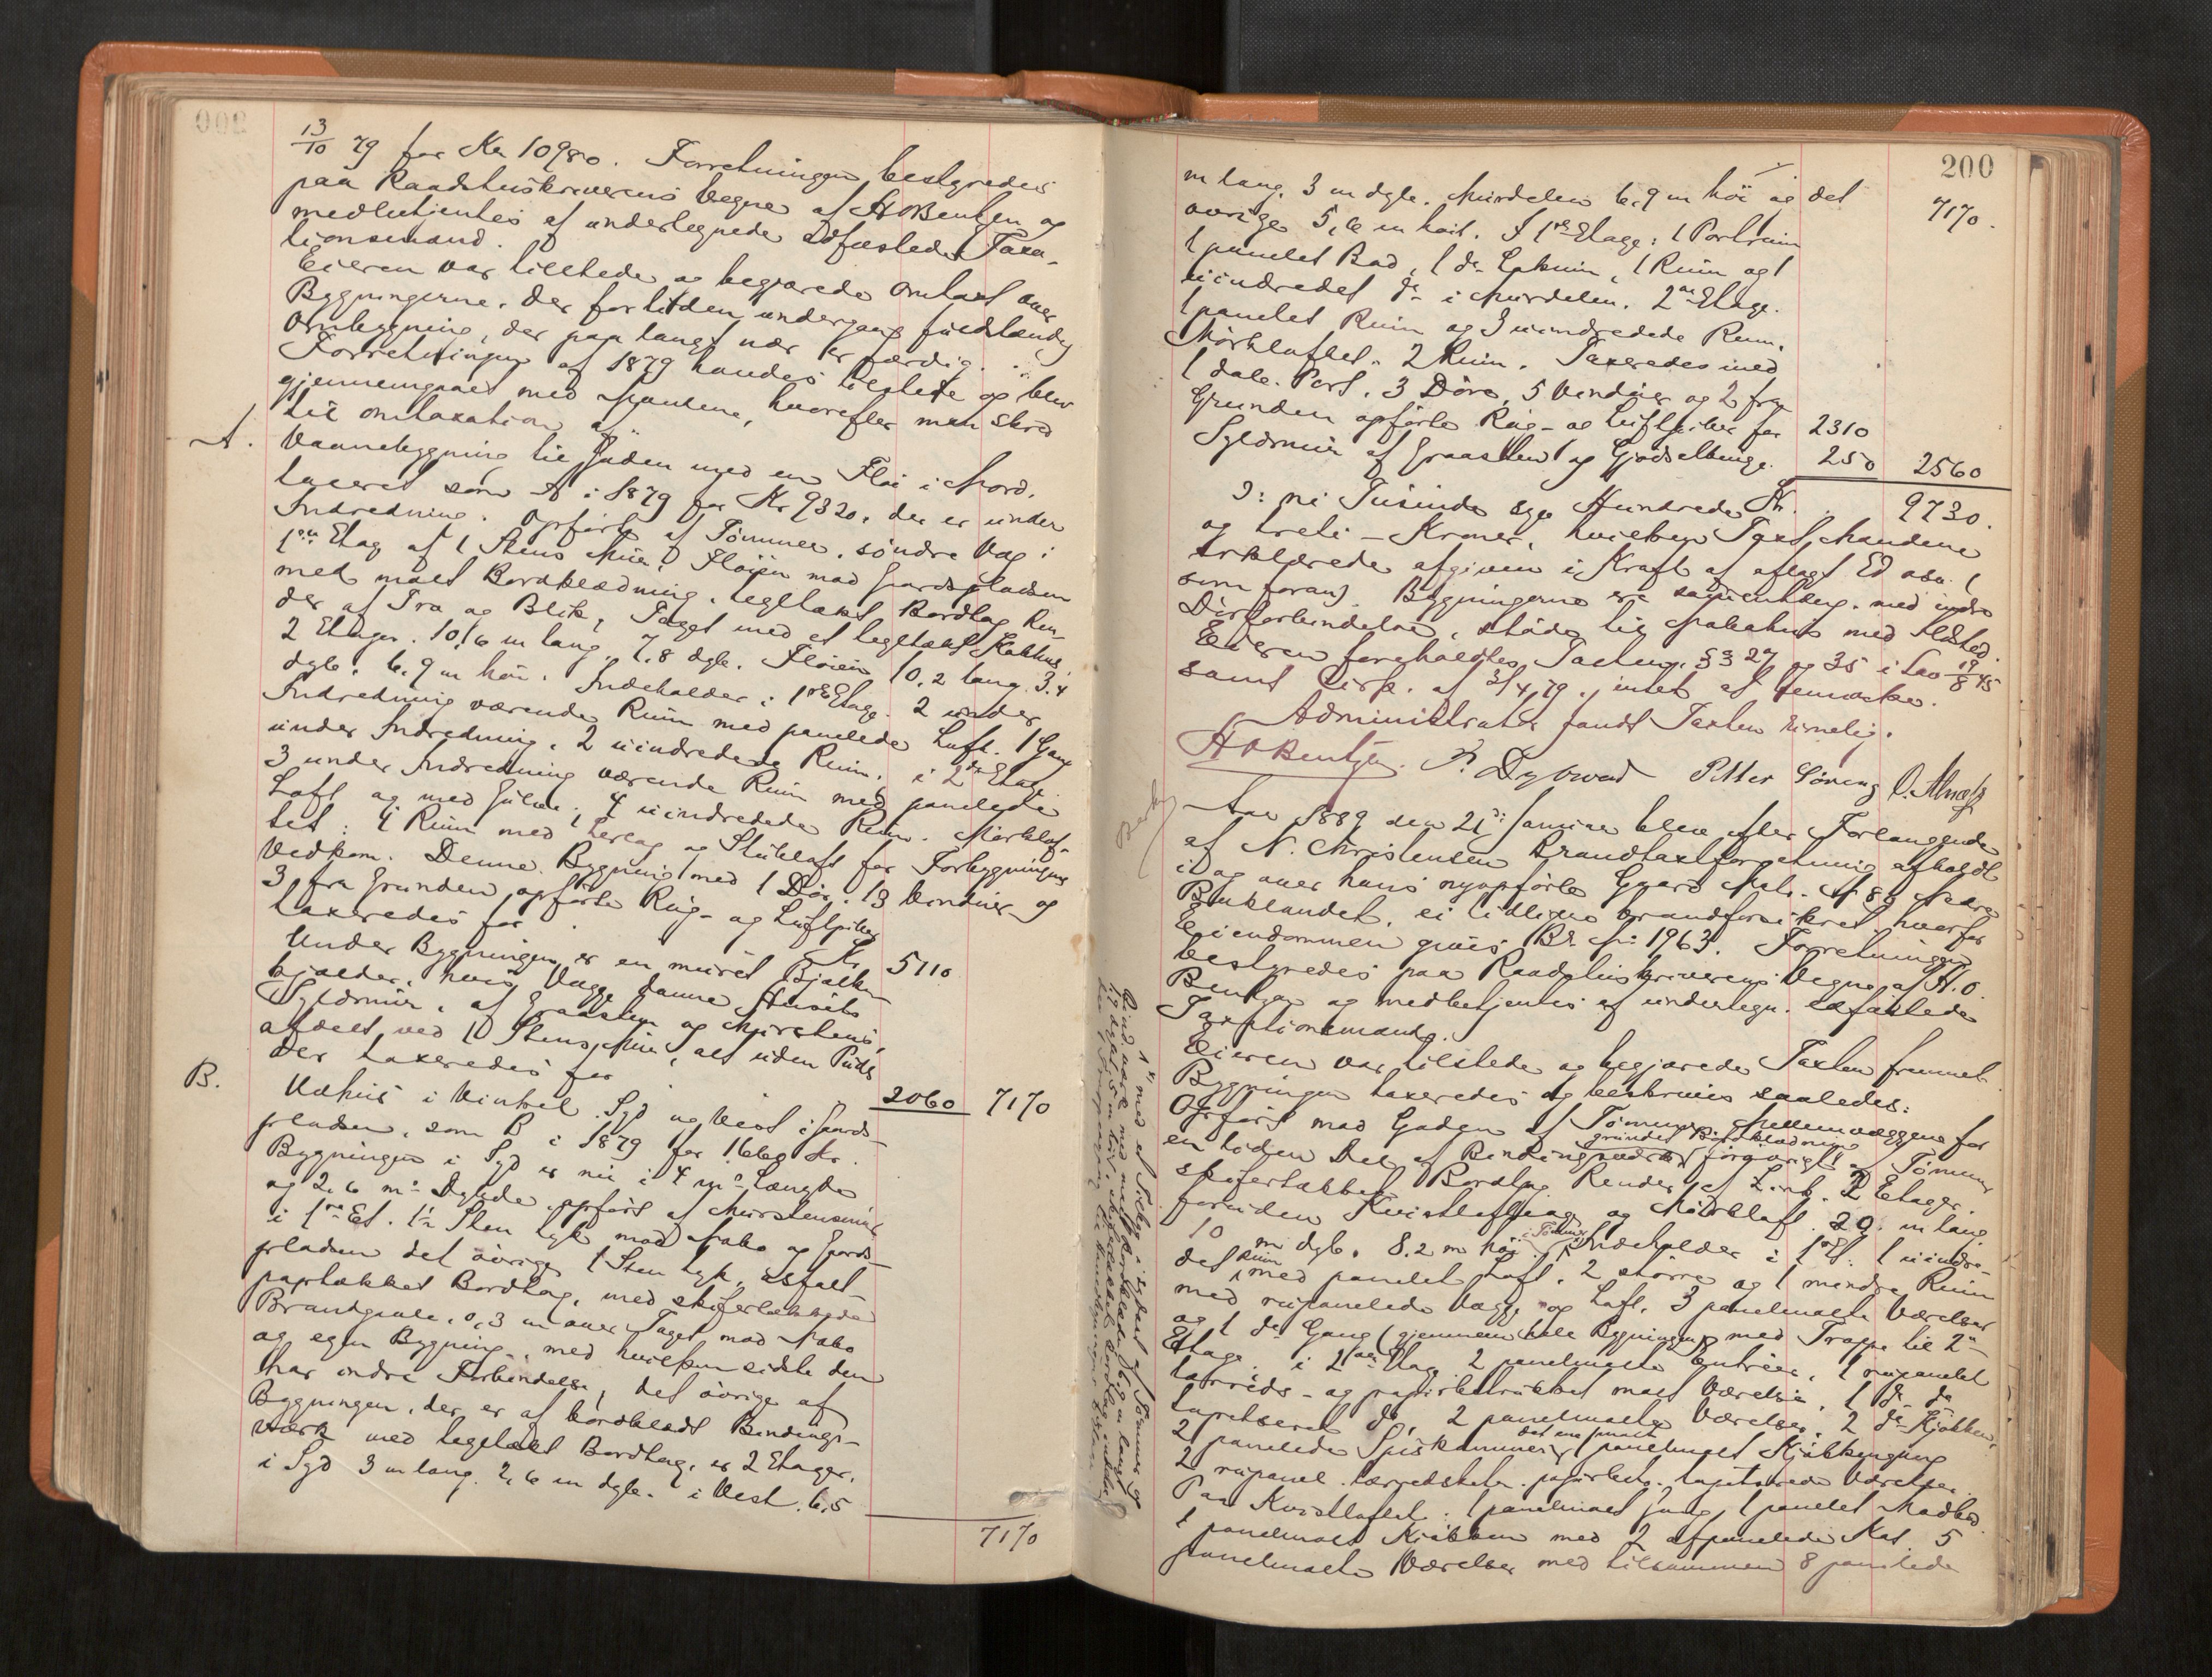 13/10 79 for Kr 10980. Forretningen bestyredes
paa Raadstuskriverens Vegne af H O Bentzen og
medbetjentes af undertegnede edfæstede Taxa-
tionsmænd.
Eieren var tilstede og begjærede Omtaxt over
Bygningerne, der for tiden undergaar fuldstændig
Ombygning, der paa langt nær er færdig.
Forretningen af 1879 havdes tilstede og blev
gjennemgaaet med Mændene, hvorefter man skred
til omtaxation af:
A. Vaanebygning til Gaden med en Fløi i Nord,
taxeret som A i 1879 for Kr 9320, der er under
Indredning. Opført af Tømmer, søndre Væg i
1ste Etag af 1 Stens Mur, Fløien mod Gaardspladsen
med malt Bordklædning, tegltækt Bordtag, Ren-
der af Træ og Blik, Taget med et tegltækt Kakhus.
2 Etager. 10,6 m lang, 7,8 dyb. Fløien 10,2 lang 3.4
dyb, 6,9 m høi. Indeholder: 1ste Etage. 2 under
Indredning værende Rum med panelede Loft. 1 Gang
under Indredning, 2 uindredede Rum. i 2den Etage
3 under Indredning værende Rum med panelede
Loft og med Gulve, 4 uindredede Rum. Mørklof-
tet: 4 Rum med Lerlag og Stubloft for Forbygningens
Vedkom. Denne Bygning med 1 Dør, 13 Vinduer og
3 fra Grunden opførte Røg- og Luftpiber
taxeredes for Kr 5110
Under Bygningen er en muret Bjælke-
kjælder, hvis Vægge danne Husets
Syldmur, af Graasten og Murstens,
afdelt ved 1 Stens Mur, alt uden Puds
der taxeredes for 2060 7170
B. Udhus i Vinkel Syd og Vest i Gaards-
pladsen, som B i 1879 for 1660 Kr.
Bygningen i Syd er nu i 4 m's Længde
og 2,6 m's Dybde opført af Murstensmur
i 1ste Et. 1½ Sten tyk mod Nabo og Gaards-
pladsen det øvrige 1 Sten tyk, asfalt-
paptækket Bordtag, med skifertækkede
Brandgavle, 0,3 m over Taget mod Nabo
og egen Bygning, med hvilken sidste den
har indre Forbindelse, det øvrige af
Bygningen, der er af bordklædt Bindings-
værk med tegltækt Bordtag, er 2 Etager,
i Syd 3 m lang 2,6 m dyb. i Vest 6,5
7170
200
m lang 3 m dyb. Murdelen 6,9 m høi og det 7170.
øvrige 5,6 m høit. I 1ste Etage: 1 Portrum
1 panelet Bod, 1 do Lokum, 1 Rum og 1
uindredet do i Murdelen. 2den Etage.
1 panelet Rum og 3 uindredede Rum.
Mørkloftet. 2 Rum. Taxeredes med
1 dobb. Port, 3 Døre, 5 Vinduer og 2 fra
Grunden opførte Røg- og Luftpiber for 2310
Syldmur af Graasten og Gjødselbinge. 250 2560
ɔ: ni Tusinde syv Hundrede Kr. 9730.
og treti - Kroner, hvilken Taxt Mændene
erklærede afgiven i Kraft af aflagt Ed osv. (
som foran). Bygningerne ere sammenbyg. med indre
Dørforbindelse, støder til Nabohus med Ildsted.
Eieren foreholdtes Taxtens §§ 27 og 35 i Lov 19/8 45
samt Cirk. af 3/4 79, intet at bemærke.
Administrator fandt Taxten rimelig.
H O Bentzen. P. Dybwad Petter Søreng O. Alnæs
Aar 1889 den 21de Januar blev efter Forlangende
af N. Christensen Brandtaxtforretning afholdt
i og over hans nyopførte Gaard Matr. № 88 Nedre
Baklandet, ei tidligere brandforsikret, hvorfor
Eiendommen givis Br. No 1963. Forretningen
bestyredes paa Raadstuskriverens Vegne af H. O.
Bentzen og medbetjentes af undertegn. edfæstede
Taxtionsmænd.
Eieren var tilstede og begjærede Taxten fremmet.
Bygningen taxeredes og beskrives saaledes:
Opført mod Gaden af Tømmer, Mellemvæggene for
grundet Bordklædning
en liden Del af Bindingsværk forøvrigt af Tømmer
skifertækket Bordtag Render af Zink. 2 Etager.
foruden Kvistleilighed og Mørkloft. 20 m lang
10 m dyb, 8.2 m høi i Tømmer. Indeholder i 1ste Et: 1 uindre-
det Rum med panelet Loft, 2 større og 1 mindre Rum
med rupanelede Vægge og Loft, 3 panelmalte Værelser
og 1 do Gang (gjennem hele Bygningen) med Trappe til 2den
Etage. i 2den Etag 2 panelmalte Entreer, 1 rupanelet
lærreds- og papirbetrukket malt Værelse, 1 do do
tapetseret do, 2 panelmalte Værelser, 2 do Kjøkken,
det ene umalt
2 panelede Spiskammere, 1 panelmalet Kjøkkengang
2 rupanel. lærredsbetr. papirbetr. tapetserede Værelser.
Paa Kvistloftet: 1 panelmalet Gang, 1 panelet Madbod
1 panelmalt Kjøkken med 2 afpanelede Kot. 5
panelmalte Værelser med tilsammen 8 panelede